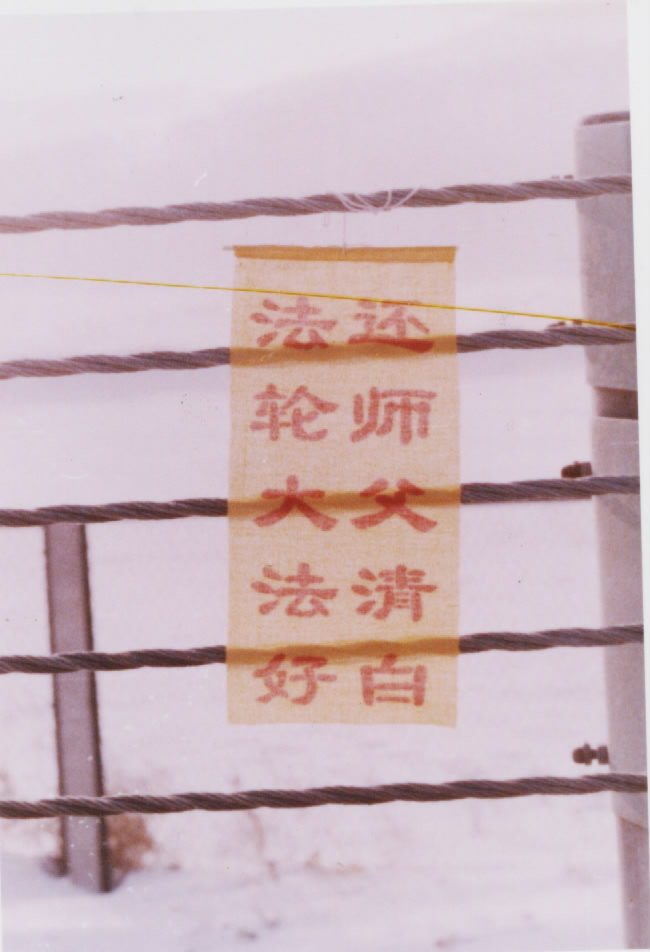 还师父清白
法轮大法好